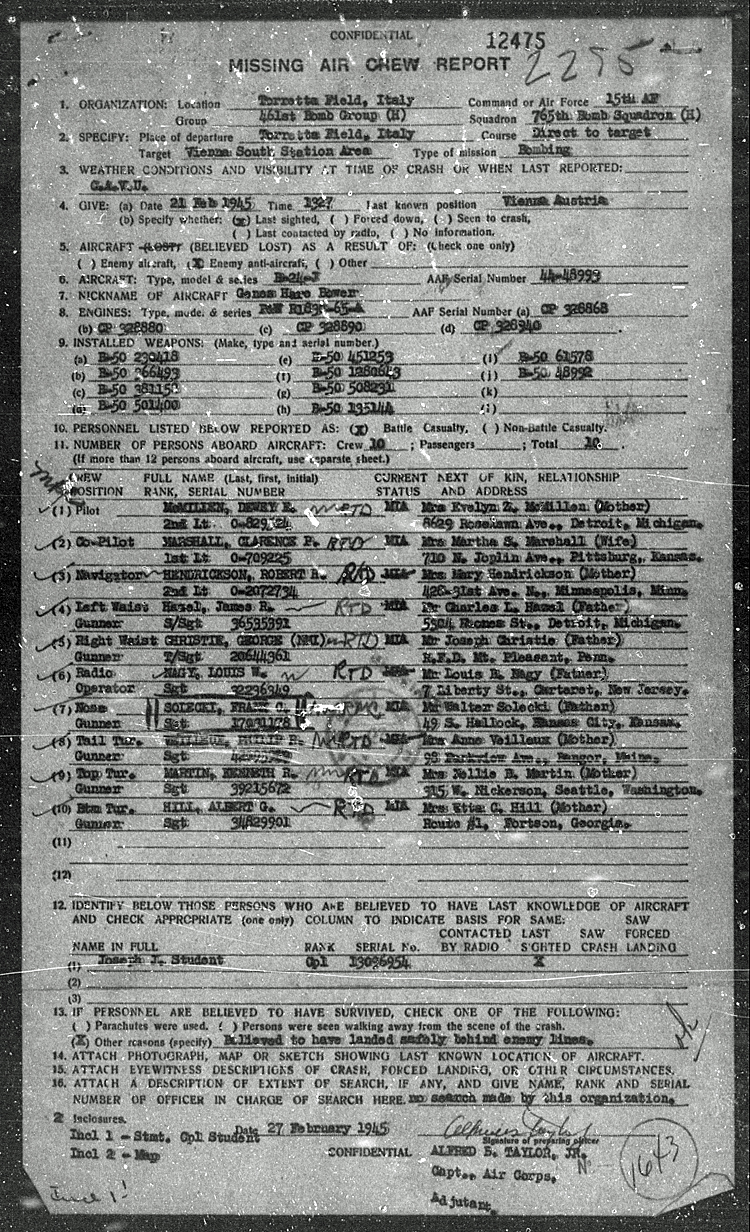 CONFIDENTIAL
12475
MISSING AIR CREW REPORT
1. ORGANIZATION: Location Torretta Field, Italy Command or Air Force 15th AF
Group 461st Bomb Group (H) Squadron 765th Bomb Squadron (H)
2. SPECIFY: Place of departure Torretta Field, Italy Course Direct to target
Target Vienna South Station Area Type of mission Bombing
3. WEATHER CONDITIONS AND VISIBILITY AT TIME OF CRASH OR WHEN LAST REPORTED:
C.A.V.U.
4. GIVE: (a) Date 21 Feb 1945 Time 1327 Last known position Vienna Austria
(b) Specify whether: (x) Last sighted, ( ) Forced down, ( ) Seen to crash,
( ) Last contacted by radio, ( ) No information.
5. AIRCRAFT (LOST) (BELIEVED LOST) AS A RESULT OF: (Check one only)
( ) Enemy aircraft, (X Enemy anti-aircraft, ( ) Other
6. AIRCRAFT: Type, model & series B-24-J AAF Serial Number 44-48993
7. NICKNAME OF AIRCRAFT Genes Hare Power
8. ENGINES: Type, mode. & series P&W R1830-65-A AAF Serial Number (a) CP 328868
(b) CP 328880 (c) CP 328890 (d) CP 328340
9. INSTALLED WEAPONS: (Make, type and serial number.)
(a) B-50 230418 (e) B-50 451253 (i) B-50 61578
(b) B-50 366493 (f) B-50 (j) B-50 48992
(c) B-50 (g) B-50 508231 (k)
(d) B-50 501400 (h) B-50 135144
10. PERSONNEL LISTED BELOW REPORTED AS: (X) Battle Casualty, ( ) Non-Battle Casualty.
11. NUMBER OF PERSONS ABOARD AIRCRAFT: Crew 10 ; Passengers ; Total 10 .
(If more than 12 persons aboard aircraft, use separate sheet.)
CREW FULL NAME (Last, first, initial) CURRENT NEXT OF KIN, RELATIONSHIP
POSITION RANK, SERIAL NUMBER STATUS AND ADDRESS
(1) Pilot McMILLEN, DEWEY E. RTD MIA Mrs Evelyn Z. McMillen (Mother)
2nd Lt 8629 Roselawn Ave., Detroit, Michigan.
(2) Co-Pilot MARSHALL, CLARENCE P. RTD MIA Mrs Martha S. Marshall (Wife)
1st Lt 0-709225 710 N. Joplin Ave., Pittsburg, Kansas.
(3) Navigator HENDRICKSON, ROBERT R. RTD MIA Mrs Mary Hendrickson (Mother)
2nd Lt 0-2072734 426-31st Ave. N., Minneapolis, Minn.
(4) Left Waist Hazel, James R. RTD MIA Mr Charles L. Hazel (Father)
Gunner S/Sgt 36535391 Detroit, Michigan.
(5) Right Waist CHRISTIE, GEORGE (NMI) RTD MIA Mr Joseph Christie (Father)
Gunner T/Sgt 20644361 R.F.D. Mt. Pleasant, Penn.
(6) Radio NAGY, LOUIS W. RTD MIA Mr Louis R. Nagy (Father)
Operator Sgt 32296349 7 Liberty St., Carteret, New Jersey.
(7) Nose SOLECKI, FRANK C. MIA Mr Walter Solecki (Father)
Gunner Sgt 17031178 49 S. Hallock, Kansas City, Kansas.
(8) Tail Tur. VEILLEUX, PHILIP RTD MIA Mrs Anne Veilleux (Mother)
Gunner Sgt 98 Parkview Ave., Bangor, Maine.
(9) Top Tur. MARTIN, KENNETH R. RTD MIA Mrs Nellie B. Martin (Mother)
Gunner Sgt 39215672 315 W. Nickerson, Seattle, Washington.
(10) Btm Tur. HILL, ALBERT G. RTD MIA Mrs Etta C. Hill (Mother)
Gunner Sgt 34829901 Route #1, Fortson, Georgia.
(11)
(12)
12. IDENTIFY BELOW THOSE PERSONS WHO ARE BELIEVED TO HAVE LAST KNOWLEDGE OF AIRCRAFT
AND CHECK APPROPRIATE (one only) COLUMN TO INDICATE BASIS FOR SAME: SAW
CONTACTED LAST SAW FORCED
NAME IN FULL RANK SERIAL No. BY RADIO SIGHTED CRASH LANDING
(1) Joseph J. Student Cpl 13096954 X
(2)
(3)
13. IF PERSONNEL ARE BELIEVED TO HAVE SURVIVED, CHECK ONE OF THE FOLLOWING:
( ) Parachutes were used. ( ) Persons were seen walking away from the scene of the crash.
(X) Other reasons (specify) Believed to have landed safely behind enemy lines.
14. ATTACH PHOTOGRAPH, MAP OR SKETCH SHOWING LAST KNOWN LOCATION OF AIRCRAFT.
15. ATTACH EYEWITNESS DESCRIPTIONS OF CRASH, FORCED LANDING, OR OTHER CIRCUMSTANCES.
16. ATTACH A DESCRIPTION OF EXTENT OF SEARCH, IF ANY, AND GIVE NAME, RANK AND SERIAL
NUMBER OF OFFICER IN CHARGE OF SEARCH HERE. no search made by this organization.
2 Inclosures.
Date 27 February 1945
Signature of preparing officer
Incl 1 - Stmt. Cpl Student
Incl 2 - Map CONFIDENTIAL ALFRED B. TAYLOR, JR.
Capt., Air Corps.
Adjutant.
1643